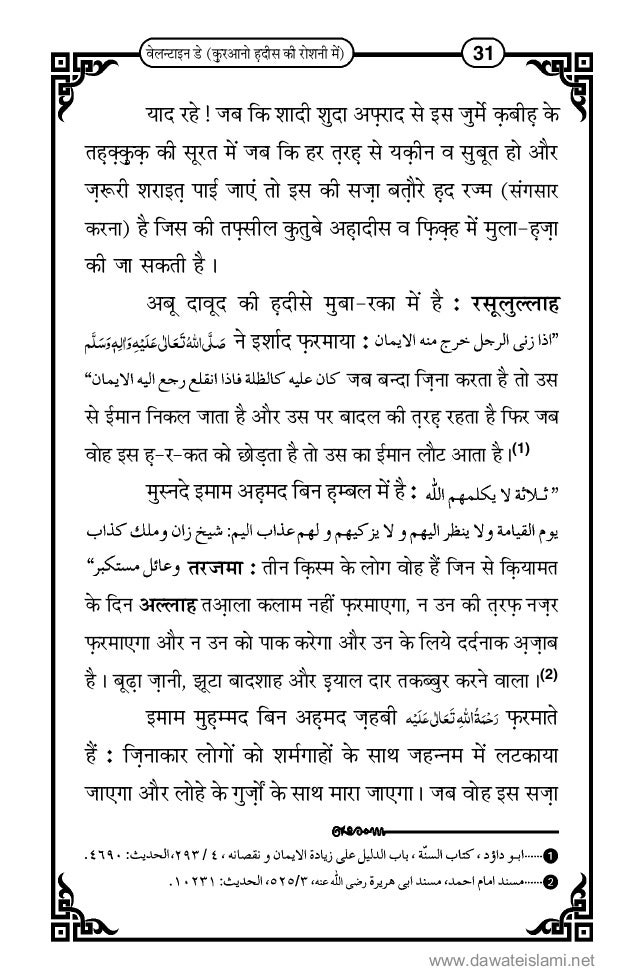 वेलन्टाइन डे (क़ुरआनो ह़दीस की रोशनी में)
31
याद रहे ! जब कि शादी शुदा अफ़्राद से इस जुर्मे क़बीह़ के
तह़क़्क़ुक़ की सूरत में जब कि हर त़रह़ से यक़ीन व सुबूत हो और
ज़रूरी शराइत़ पाई जाएं तो इस की सज़ा बत़ौरे ह़द रज्म (संगसार
करना) है जिस की तफ़्सील कुतुबे अह़ादीस व फ़िक़्ह में मुला-ह़ज़ा
की जा सकती है ।
अबू दावूद की ह़दीसे मुबा-रका में है : रसूलुल्लाह
صَلَّى اللهُ تَعَالٰى عَلَيْهِ وَاٰلِهٖ وَسَلَّم ने इर्शाद फ़रमाया : ”اذا زنى الرجل خرج منه الايمان
كان عليه كالظلة فاذا انقلع رجع اليه الايمان“ जब बन्दा ज़िना करता है तो उस
से ईमान निकल जाता है और उस पर बादल की त़रह़ रहता है फिर जब
वोह इस ह़-र-कत को छोड़ता है तो उस का ईमान लौट आता है ।(1)
मुस्नदे इमाम अह़मद बिन ह़म्बल में है : ”ثلاثة لا يكلمهم الله
يوم القيامة ولا ينظر اليهم و لا يزكيهم و لهم عذاب اليم: شيخ زان وملك كذاب
وعائل مستكبر“ तरजमा : तीन क़िस्म के लोग वोह हैं जिन से क़ियामत
के दिन अल्लाह तआ़ला कलाम नहीं फ़रमाएगा, न उन की त़रफ़ नज़र
फ़रमाएगा और न उन को पाक करेगा और उन के लिये दर्दनाक अ़ज़ाब
है । बूढ़ा ज़ानी, झूटा बादशाह और इ़याल दार तकब्बुर करने वाला ।(2)
इमाम मुह़म्मद बिन अह़मद ज़हबी رَحْمَةُ اللهِ تَعَالٰى عَلَيْه फ़रमाते
हैं : ज़िनाकार लोगों को शर्मगाहों के साथ जहन्नम में लटकाया
जाएगा और लोहे के गुर्ज़ों के साथ मारा जाएगा । जब वोह इस सज़ा
1......ابو داؤد ، كتاب السنّة ، باب الدليل على زيادة الايمان و نقصانه ، ٤ / ٢٩٣،الحديث: ٤٦٩٠.
2......مسند امام احمد، مسند ابى هريرة رضى الله عنه، ٥٢٥/٣، الحديث: ١٠٢٣١.
www.dawateislami.net